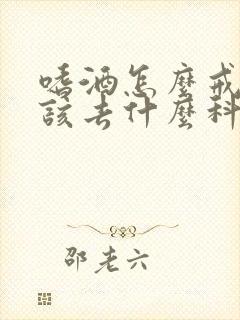 嗜酒怎麼戒
該去什麼科
邵老六